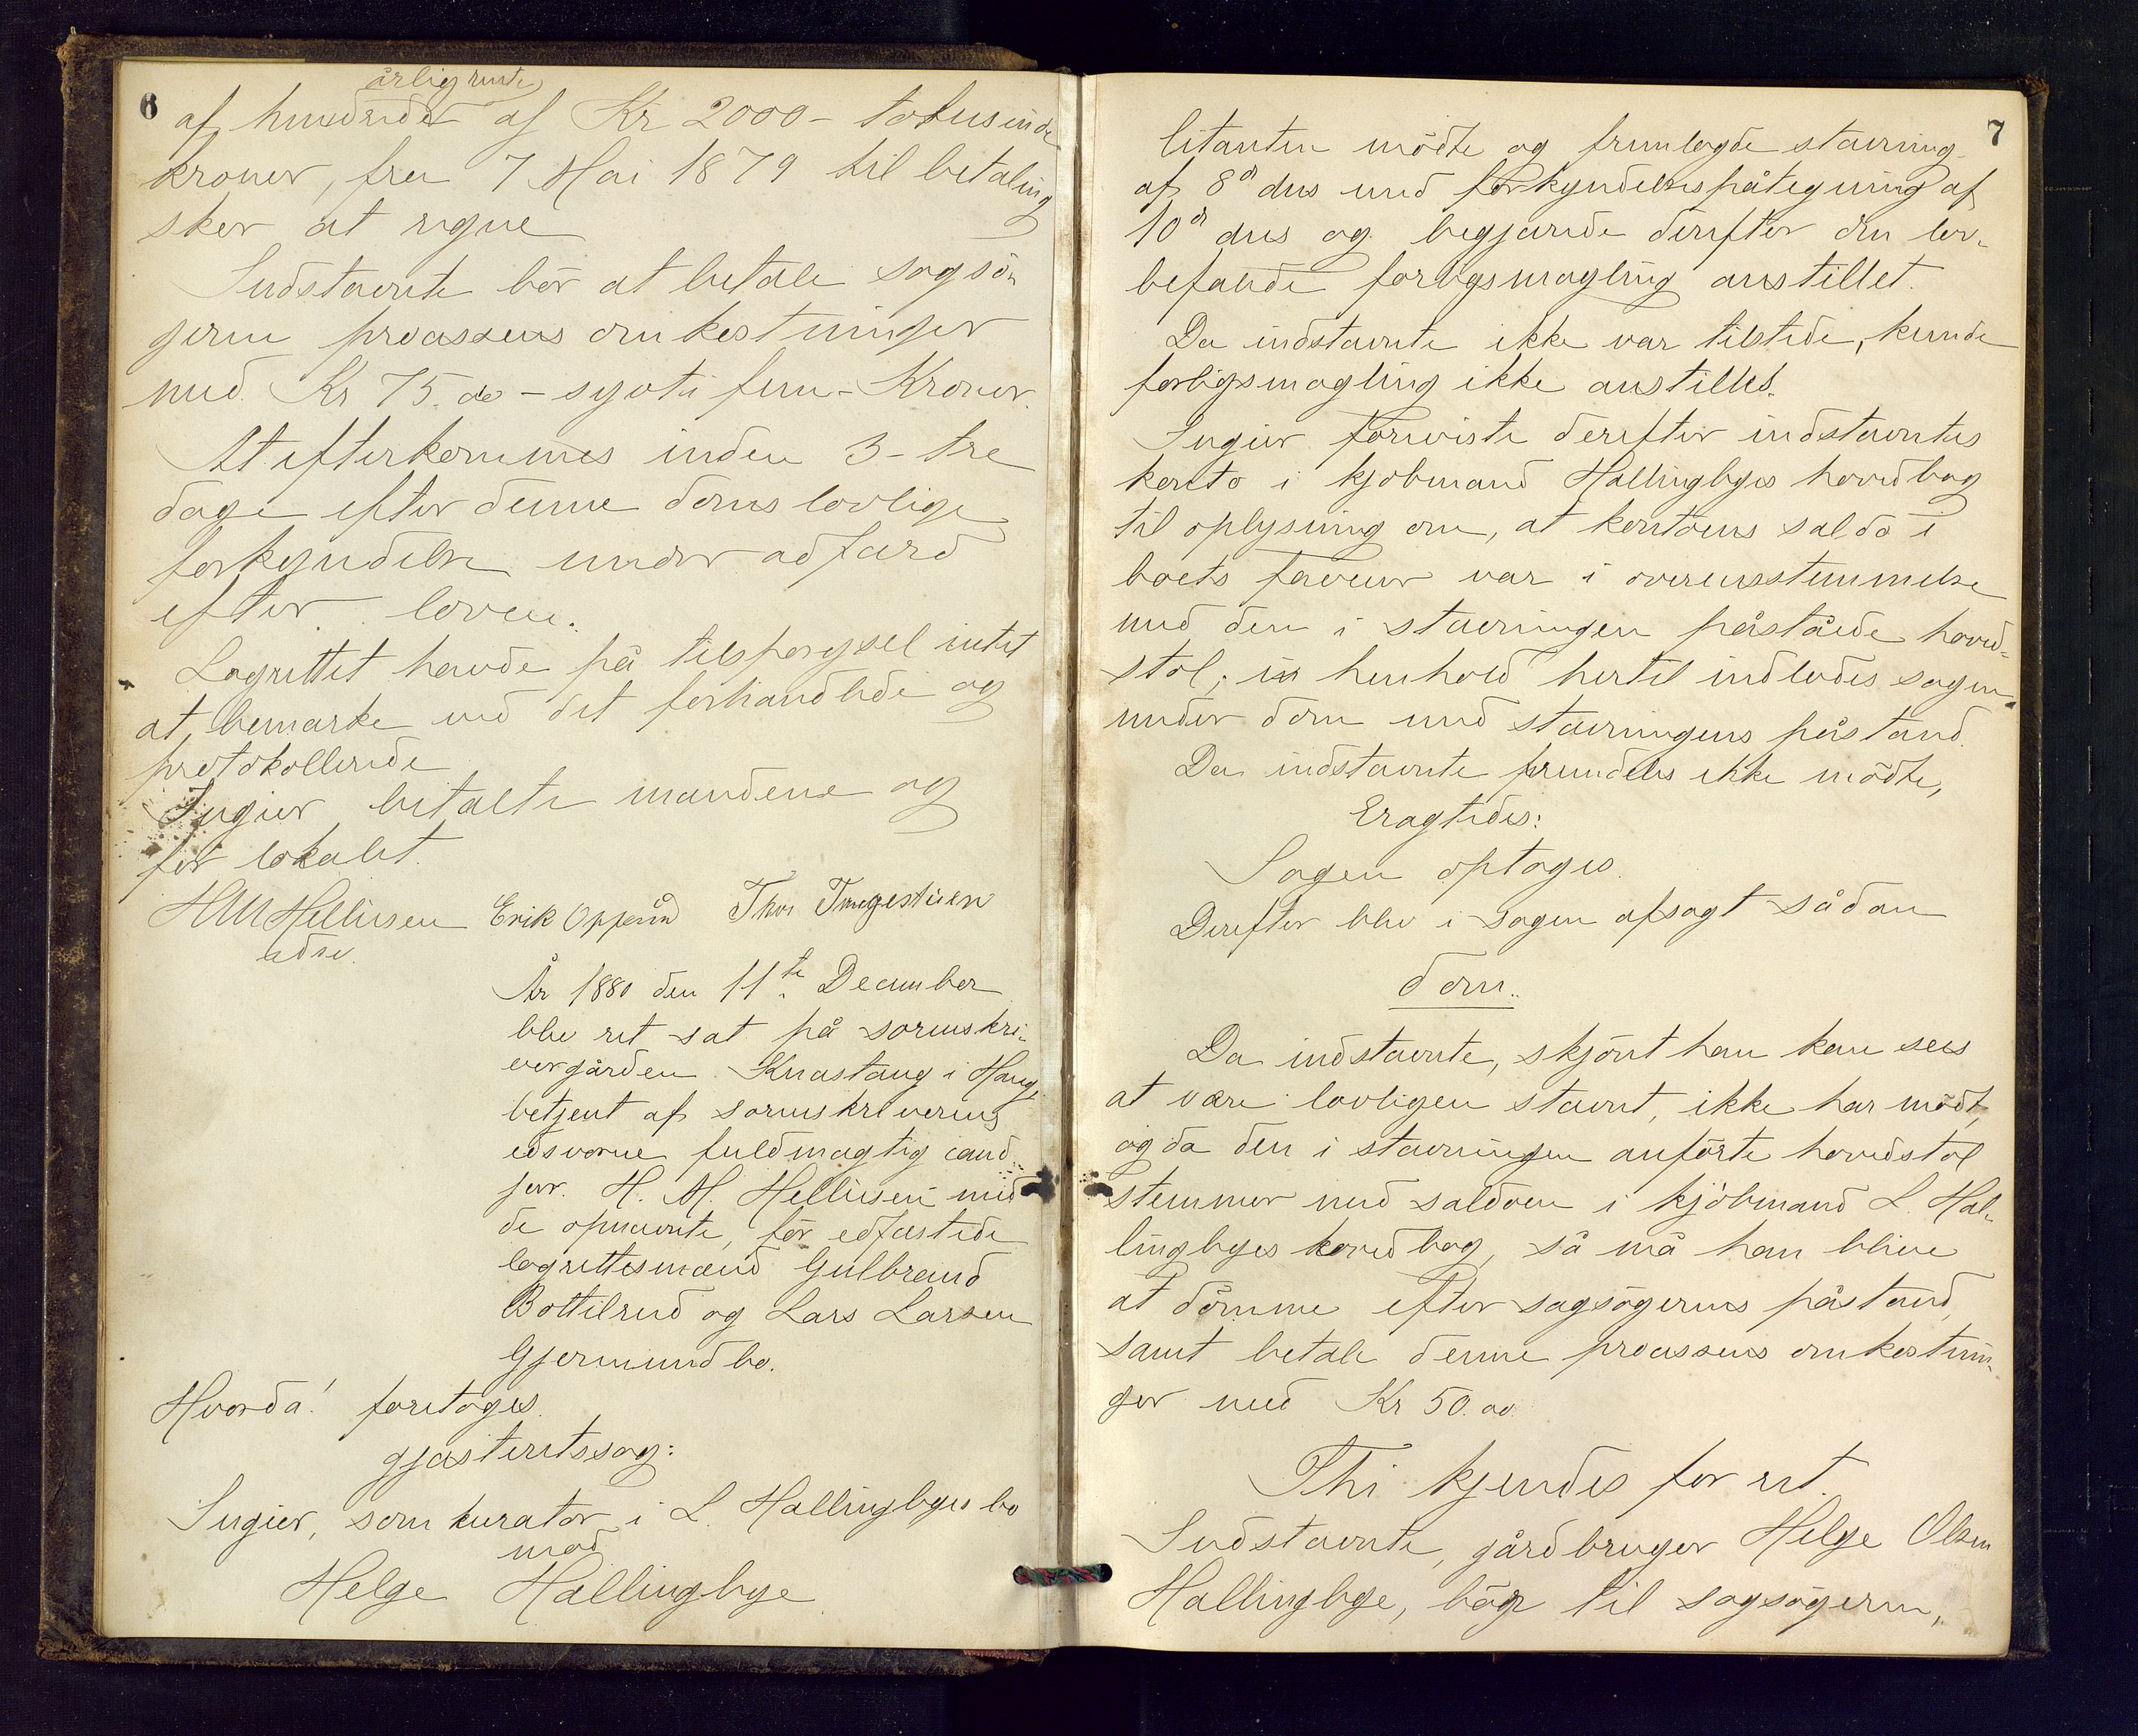 6
årlig rente
af hundrede af Kr 2000 – totusinde
kroner, fra 7 Mai 1879 til betaling
sker at regne
Indstævnte bør at betale sagsö-
geren processens omkostninger
med Kr 75.00 – sytti fem – Kroner.
At efterkommes inden 3 – tre
dage efter denne doms lovlige
forkyndelse under adfærd
efter loven.
Lagrettet havde på tilspørgsel intet
at bemærke ved det forhandlede og
protokollerede
Ingier betalte mændene og
for lokalet.
HM Helliesen Erik Oppen Thor Tingestuen
edsv.
År 1880 den 11te December
blev ret sat på sorenskri-
vergården Knastang i Haug
betjent af sorenskriverens
edsvorne fuldmægtig cand.
jur. H. M. Hellisen med
de opnævnte, för edfæstede
lagrettesmænd Gulbrand
Bottilrud og Lars Larsen
Gjermundbo.
Hvorda! foretoges
gjæsteretssag:
Ingier, som kurator i L. Hallingbyes bo
mod
Helge Hallingbye
7
litanten mödte og fremlagde stævning
af 8de dns med forkyndelsespåtegning af
10de dns og begjærede derefter den lov-
befalede forligsmægling anstillet.
Da indstævnte ikke var tilstede, kunde
forligsmægling ikke anstilles.
Ingier foreviste derefter indstævntes
konto i kjøbmand Hallingbyes hovedbog
til oplysning om, at kontoens saldo i
boets faveur var i overensstemmelse
med den i stævningen påståede hoved-
stol; i henhold hertil indlodes sagen
under dom med stævningens påstand.
Da indstævnte fremdeles ikke mödte,
Eragtedes:
Sagen optages.
Derefter blev i sagen afsagt sådan
dom..
Da indstævnte, skjönt han kan sees
at være lovligen stævnt, ikke har mödt,
og da den i stævningen anförte hovedstol
stemmer med saldoen i kjöbmand L. Hal-
lingbyes hovedbog, så må han blive
at dömme efter sagsögerens påstand,
samt betale denne processens omkostnin-
ger med Kr 50.00.
Thi kjendes for ret.
Indstævnte, gårdbruger Helge Olsen
Hallingbye, bör til sagsögeren,